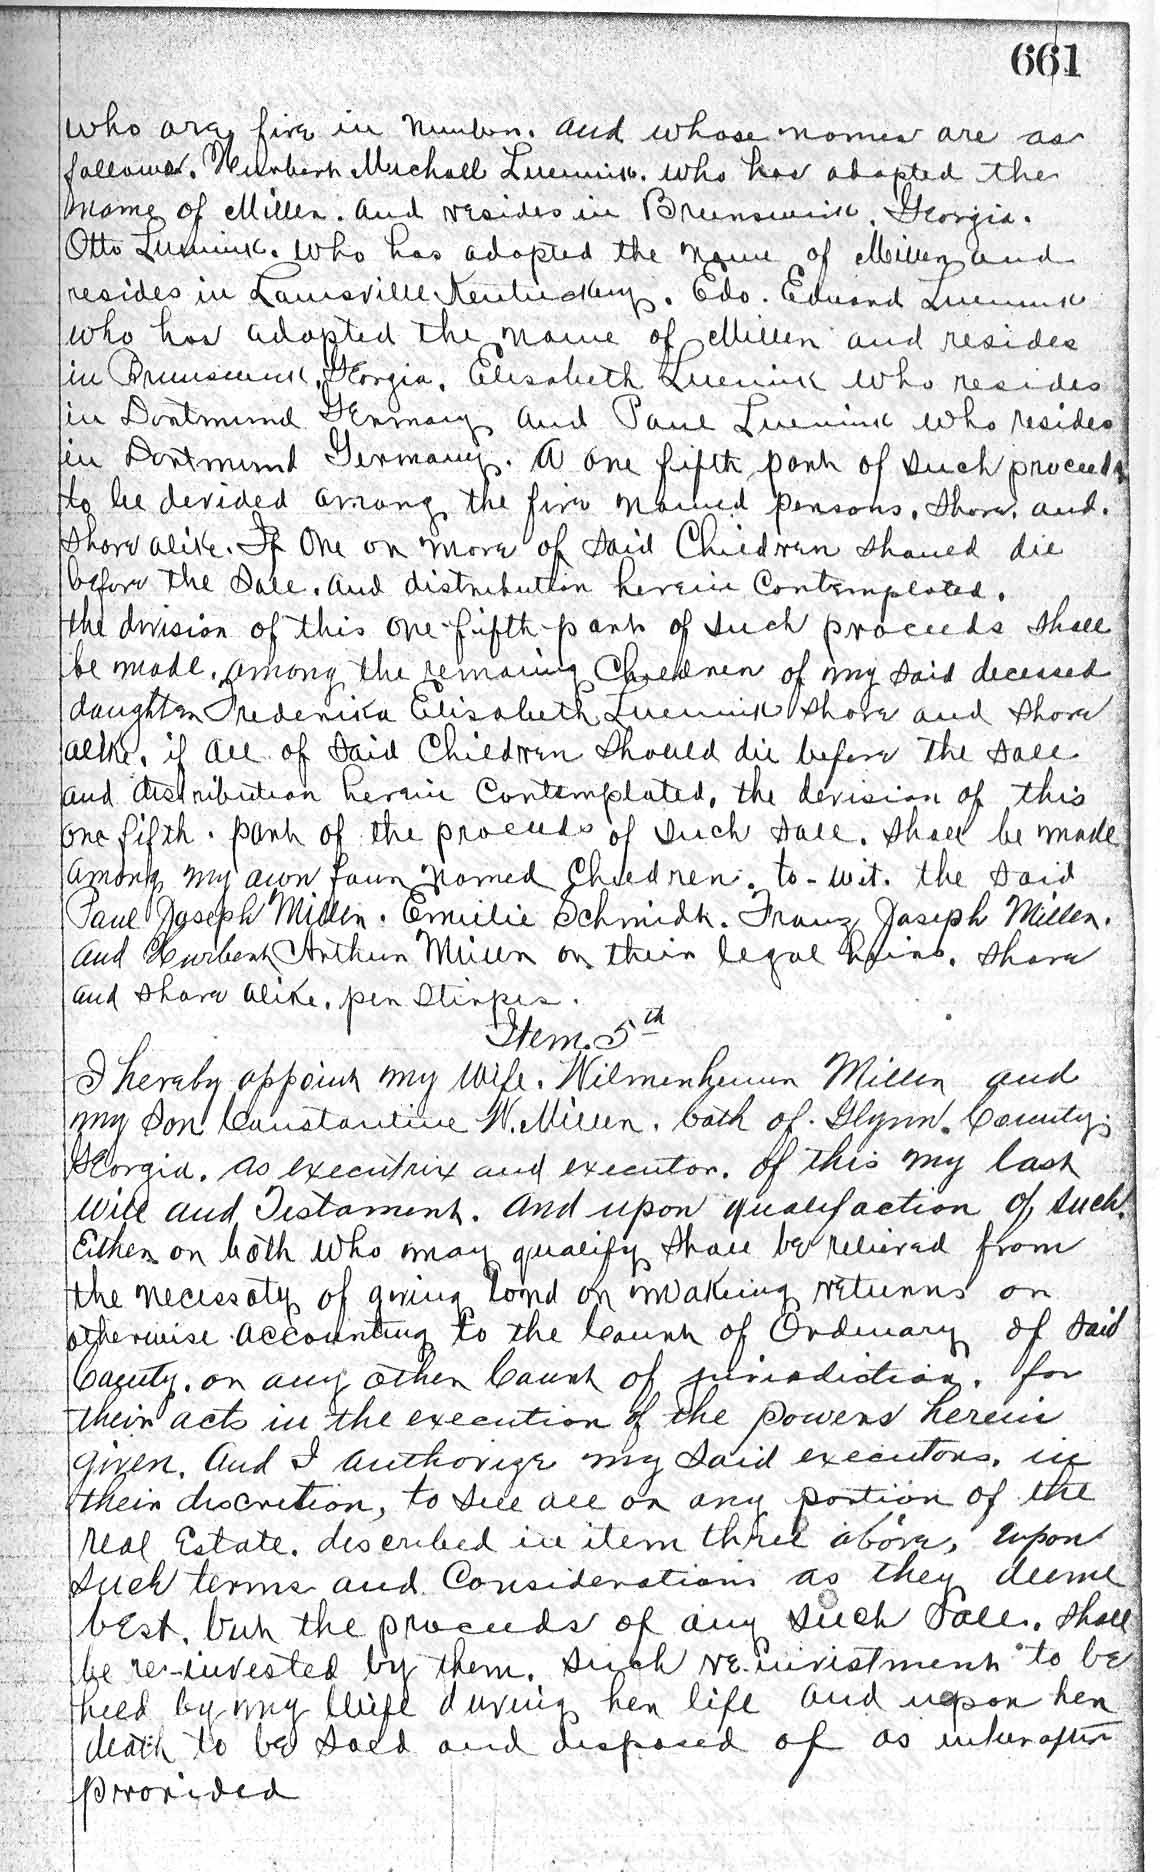 661
who are five in number. and whose names are as
follows. Hurbert Michall Luenink. who has adopted the
name of Miller. and resides in Brunswick, Georgia.
Otto Luenink. who has adopted the name of Miller and
resides in Louisville Kentuckey. Edo. Eduard Luenink
who has adopted the name of Miller and resides
in Brunswick, Georgia. Elisabeth Luenink who resides
in Dortmund Germany and Paul Luenink who resides
in Dortmund Germany. A one fifth part of such proceeds
to be devided among the five named persons. Share. and.
share alike. If One or more of said Children should die
before the Sale. and distribution herein Contemplated.
the division of this one-fifth-part of such proceeds shall
be made. among the remaing Children of my said decessed
daughter Frederika Elisabeth Luenink share and share
alike. if all of said Children should die before the sale
and distribution herein Contemplated. the devision of this
one fifth. part of the proceeds of such sale. shall be made
among my own four named Children. to-wit. the said
Paul Joseph Miller. Emilie Schmidt. Franz Joseph Miller.
and Hurbert Arthur Miller or their legal heirs. Share
and share alike. per Stirpes.
Item. 5th
I hereby appoint my Wife. Wilmenheimen Miller and
my Son Constantine W. Miller. both of. Glynn. County.
Georgia. as executrix and executor. of this my last
will and Testament. and upon qualifaction of such.
Either or both who may qualify shall be relieved from
the necessaty of giving bond or making returns or
otherwise accounting to the Court of Ordinary of said
County. or any other Court of jurisdiction. for
their acts in the execution of the powers herein
given. And I authorize my said executors. in
their discretion, to sell all or any portion of the
real Estate. described in item three above, upon
such terms and Considerations as they deeme
best. but the proceeds of any such sale. shall
be re-invested by them. such re-invistment to be
held by my Wife during her life and upon her
death to be sold and disposed of as inhereafter
provided